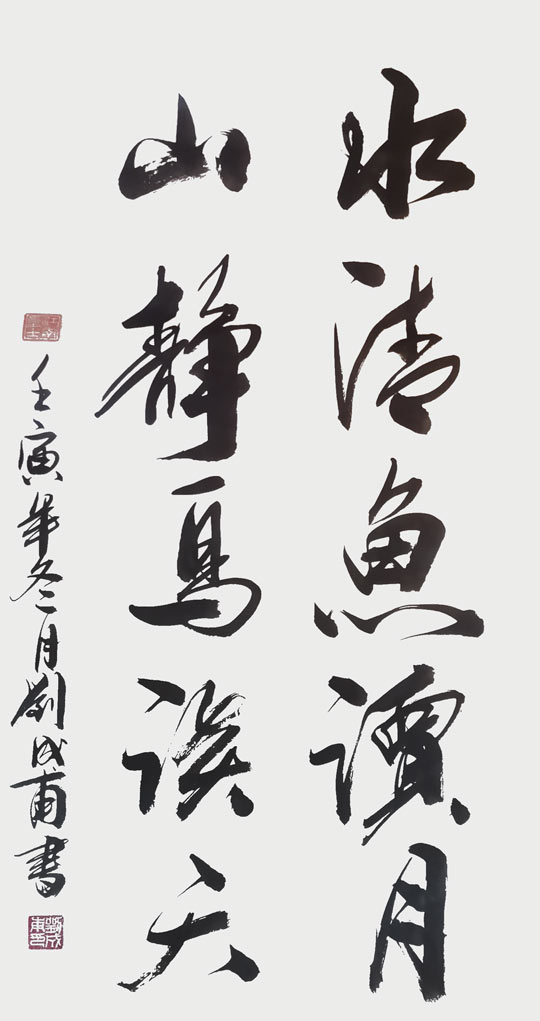 水清魚讀月
山靜鳥談天
壬寅年冬月劉成甫書